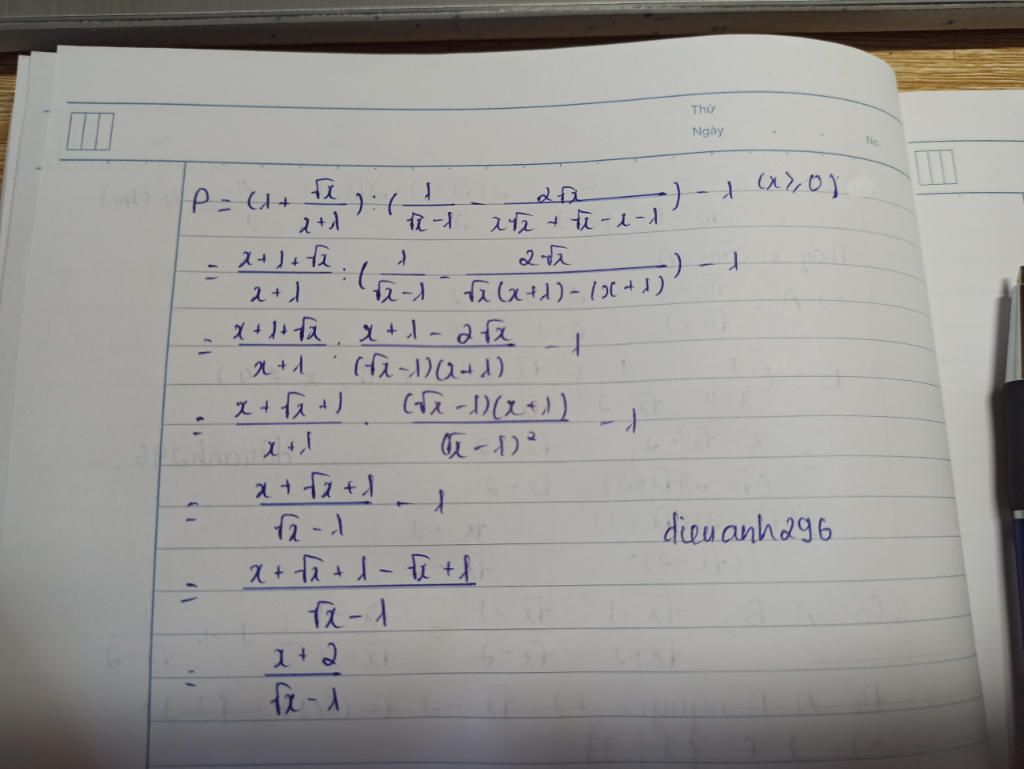 Thứ
Ngày . . No.
P = (1 + √x/(x+1)) : (1/(√x-1) - 2√x/(x√x + √x - x - 1)) - 1 (x ≥ 0;
= (x+1+√x)/(x+1) : (1/(√x-1) - 2√x/(√x(x+1)-(x+1))) - 1
= (x+1+√x)/(x+1) : (x+1-2√x)/((√x-1)(x+1)) - 1
= (x+√x+1)/(x+1) . ((√x-1)(x+1))/(√x-1)² - 1
= (x+√x+1)/(√x-1) - 1
dieuanh296
= (x+√x+1-√x+1)/(√x-1)
= (x+2)/(√x-1)